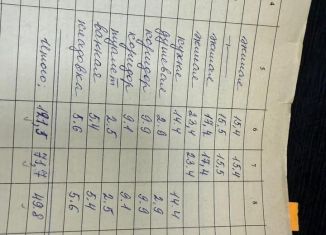 4 5 6 7 8
жилая 15,4 15,4
—"— 15,5 15,5
жилая 17,4 17,4
жилая 23,4 23,4
кухня 14.4 14.4
душевая 2.9 2.9
коридор 9.9 9.9
коридор 9.1 9.1
туалет 2.5 2.5
ванная 5.4 5.4
кладовка 5.6 5.6
Итого: 121,5 71,7 49.8